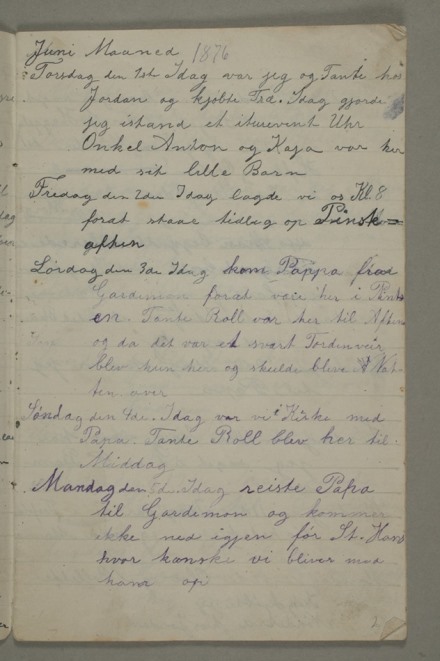 Juni Maaned 1876
Torsdag den 1ste Idag var jeg og Tante hos
Jordan og kjøbte Træ. Idag gjorde
jeg istand et iturevint Uhr
Onkel Anton og Kaja var her
med sit lille Barn
Fredag den 2den Idag lagde vi os Kl. 8
foråt staae tidleg op Pinsk=
aften
Lørdag den 3de Idag kom Pappa fraa
Gardemon foråt være her i Pints
en. Tante Roll var her til Aften
og da det var et svært Tordenveir
blev hun her og skulde blive Nat-
ten over
Søndag den 4de. Idag var vi i Kirke med
Papa. Tante Roll blev her til
Middag
Mandag den 5de. Idag reiste Papa
til Gardemon og kommer
ikke ned igjen før St. Hans
hvor kanske vi bliver med
ham op